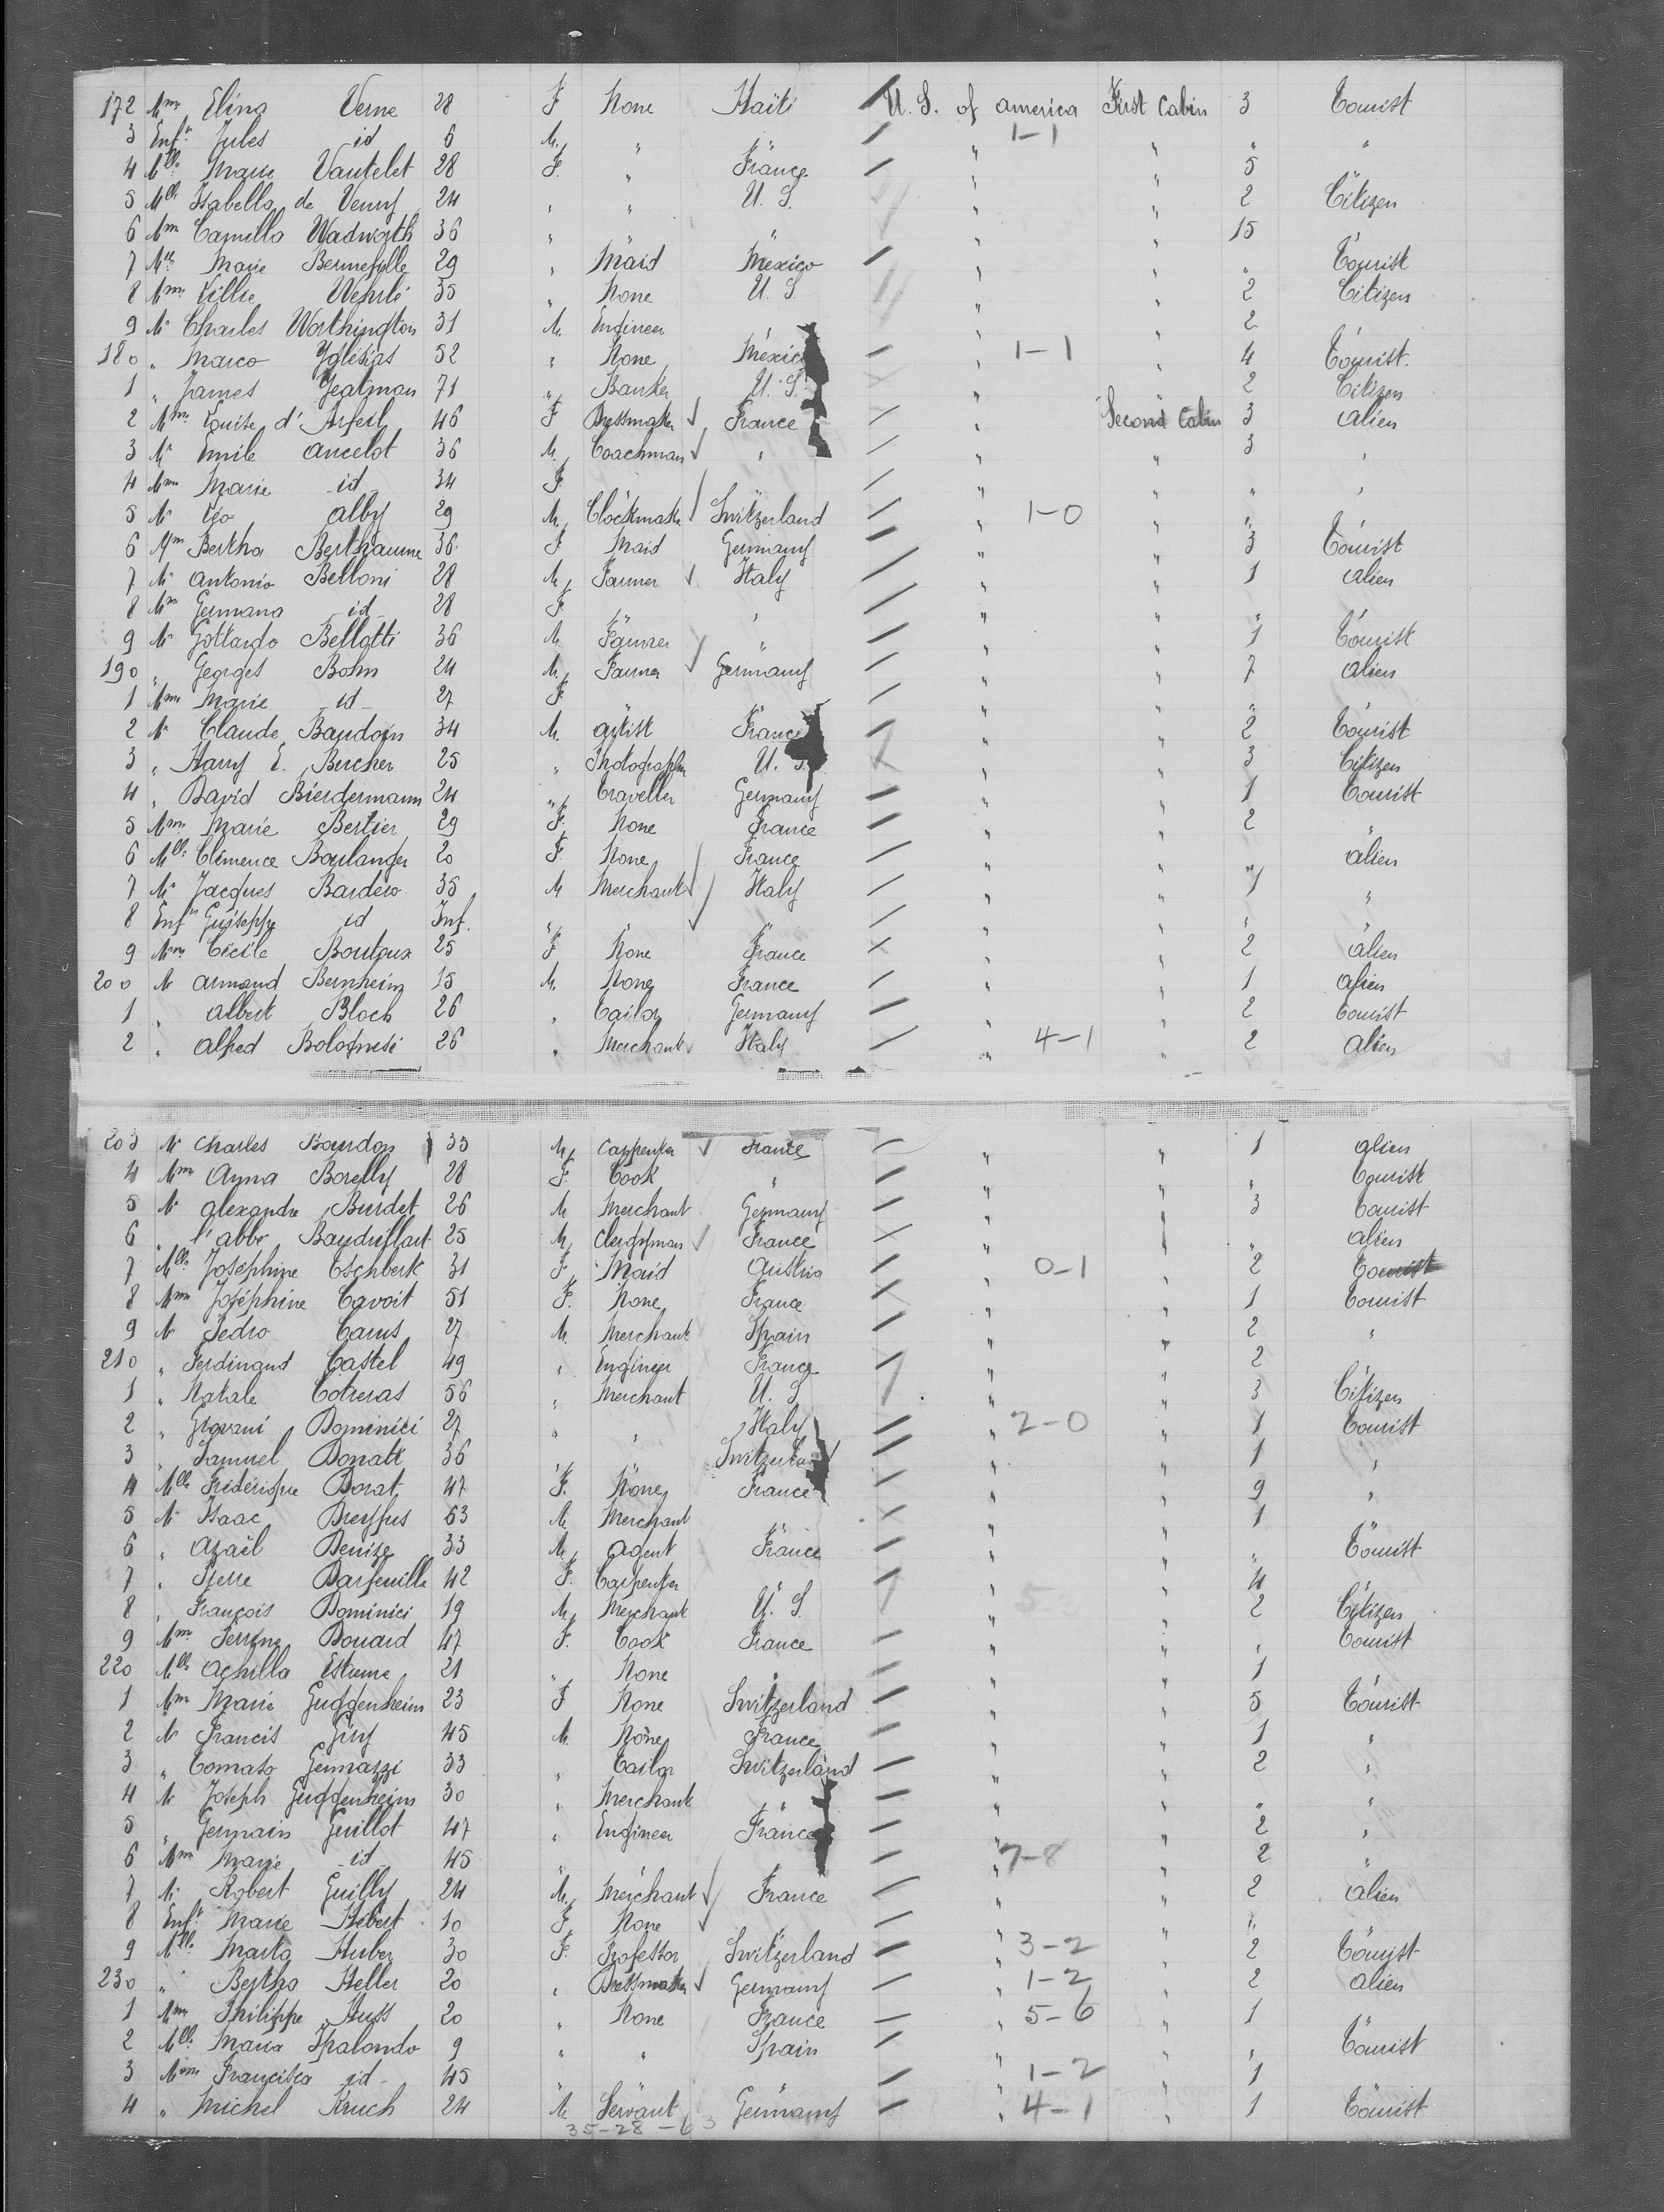 172 Mme Elina Verne 28 F None Haïti U. S. of america First Cabin 3 Tourist
3 Enft Jules id 6 M. " " 1-1 " " "
4 Mlle Marie Vautelet 28 F. " France " " 5
5 Mlle Isabella de Venny 24 " " U. S. " " 2 Citizen
6 Mme Camilla Wadworth 36 " " " " 15
7 Mlle Marie 29 " Maid Mexico " " " Tourist
8 Mme Lillie Wehrlé 55 " None U. S " " 2 Citizen
9 Mr Charles Worthington 31 M. Engineer " " 2
180 " Marco Yglesias 52 " None Mexico 1-1 " 4 Tourist.
1 " James Yeatman 71 " Banker U. S. " " 2 Citizen
2 Mme Louise d' 46 F Dressmaker France " Second Cabin 3 alien
3 Mr Emile ancelot 36 M. Coachman " " " 3 "
4 Mme Marie id 34 F. " " " " " "
5 Mr Léo alby 29 M. Clockmaker Switzerland " 1-0 " " "
6 Mme Bertha Berthaume 36 F Maid Germany " " 3 Tourist
7 Mr antonio Belloni 28 M. Farmer Italy " " 1 alien
8 Mme Germana id 28 F. " " " " "
9 Mr Gottardo Bellotti 36 M. Farmer " " " 1 Tourist
190 " Georges Bohn 24 M. Farmer Germany " " 7 alien
1 Mme Marie id 27 F. " " " " "
2 Mr Claude Baudoin 34 M. artist France " " 2 Tourist
3 " Harry E. Bircher 25 " Photographer U. S. " " 3 Citizen
4 " David Bierdermann 24 " Traveller Germany " " 1 Tourist
5 Mme Marie Bertier 29 F. None France " " 2 "
6 Mlle Clémence Boulanger 20 F. None France " " " alien
7 Mr Jacques Bardero 35 M Merchant Italy " " 1 "
8 Enft Guiseppe id Inf. " " " " " " "
9 Mme Cécile Boutoux 25 F None France " " 2 alien
200 Mr armand Bernheim 15 M. None France " " 1 alien
1 " albert Bloch 26 " Tailor Germany " " 2 Tourist
2 " alfred Bolognesi 26 " Merchant Italy " 4-1 " 2 alien
203 Mr Charles Bourdon 33 M. Carpenter France " " 1 alien
4 Mme Anna Borelly 28 F. Cook " " " " Tourist
5 Mr alexandre Burdet 26 M Merchant Germany " " 3 Tourist
6 " l'abbé Baudrillart 25 M. Clergyman France " " " alien
7 Mlle Josephine Eschberk 31 F. Maid Austria " 0-1 " 2 Tourist
8 Mme Joséphine Cavoit 51 F. None France " " 1 Tourist
9 Mr Pedro Carus 27 M. Merchant Spain " " 2 "
210 " Ferdinand Castel 49 " Engineer France " " 2
1 " Natale Cotreras 56 " Merchant U. S " " 3 Citizen
2 " Giovani Dominici 27 " " Italy " 2-0 " 1 Tourist
3 " Samuel Donatt 36 " " Switzerland " " 1 "
4 Mlle Fréderique Dorat 47 F. None France " " 9 "
5 Mr Isaac Dreyfus 63 M. Merchant " " " 1 "
6 " Azaël Denize 33 M. agent France " " " Tourist
7 " Pierre Darfeuille 42 F. Carpenter " " " 4 "
8 " François Dominici 19 M. Merchant U. S. " " 2 Citizen
9 Mme Perrine Douard 47 F. Cook France " " " Tourist
220 Mlle Achilla Estreme 21 " None " " " 1
1 Mme Marie Guggenheim 23 F None Switzerland " " 5 Tourist
2 Mr Francis Giry 45 M. None France " " 1 "
3 " Tomaso Gemazzi 33 " Tailor Switzerland " " 2 "
4 Mr Joseph Guggenheim 30 " Merchant " " " " "
5 " Germain Guillot 47 " Engineer France " " 2 "
6 Mme Marie id 45 " " " " 7-8 " 2 "
7 Mr Robert Guilly 24 M. Merchant France " " 2 alien
8 Enft Marie Hébert 10 F. None " " " " "
9 Mlle Marta Huber 30 F. Professor Switzerland " 3-2 " 2 Tourist
230 " Bertha Heller 20 " Dressmaker Germany " 1-2 " 2 alien
1 Mme Philippe Huss 20 " None France " 5-6 " 1 "
2 Mlle Maria Ipalondo 9 " " Spain " " " Tourist
3 Mme Francisca id 45 " " " " 1-2 " 1 "
4 " Michel Kruch 24 M. Servant Germany " 4-1 " 1 Tourist
35-28-63